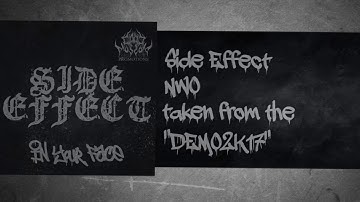 SIDE
EFFECT
IN YOUR FACE
Side Effect
NWO
taken from the
"DEMO2K17"